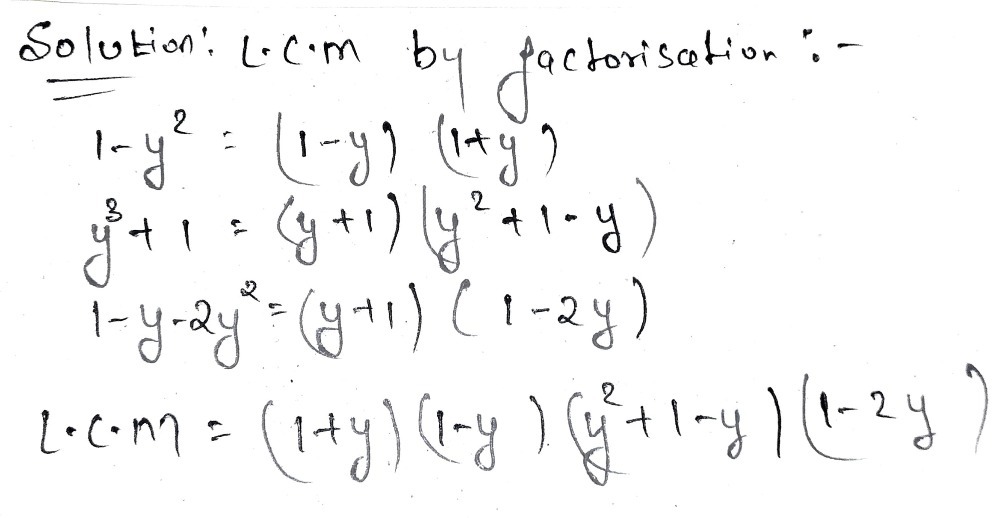 Solution: L.C.M by factorisation :-
1-y² = (1-y) (1+y)
y³+1 = (y+1) (y²+1-y)
1-y-2y² = (y+1) (1-2y)
L.C.M = (1+y) (1-y) (y²+1-y) (1-2y)